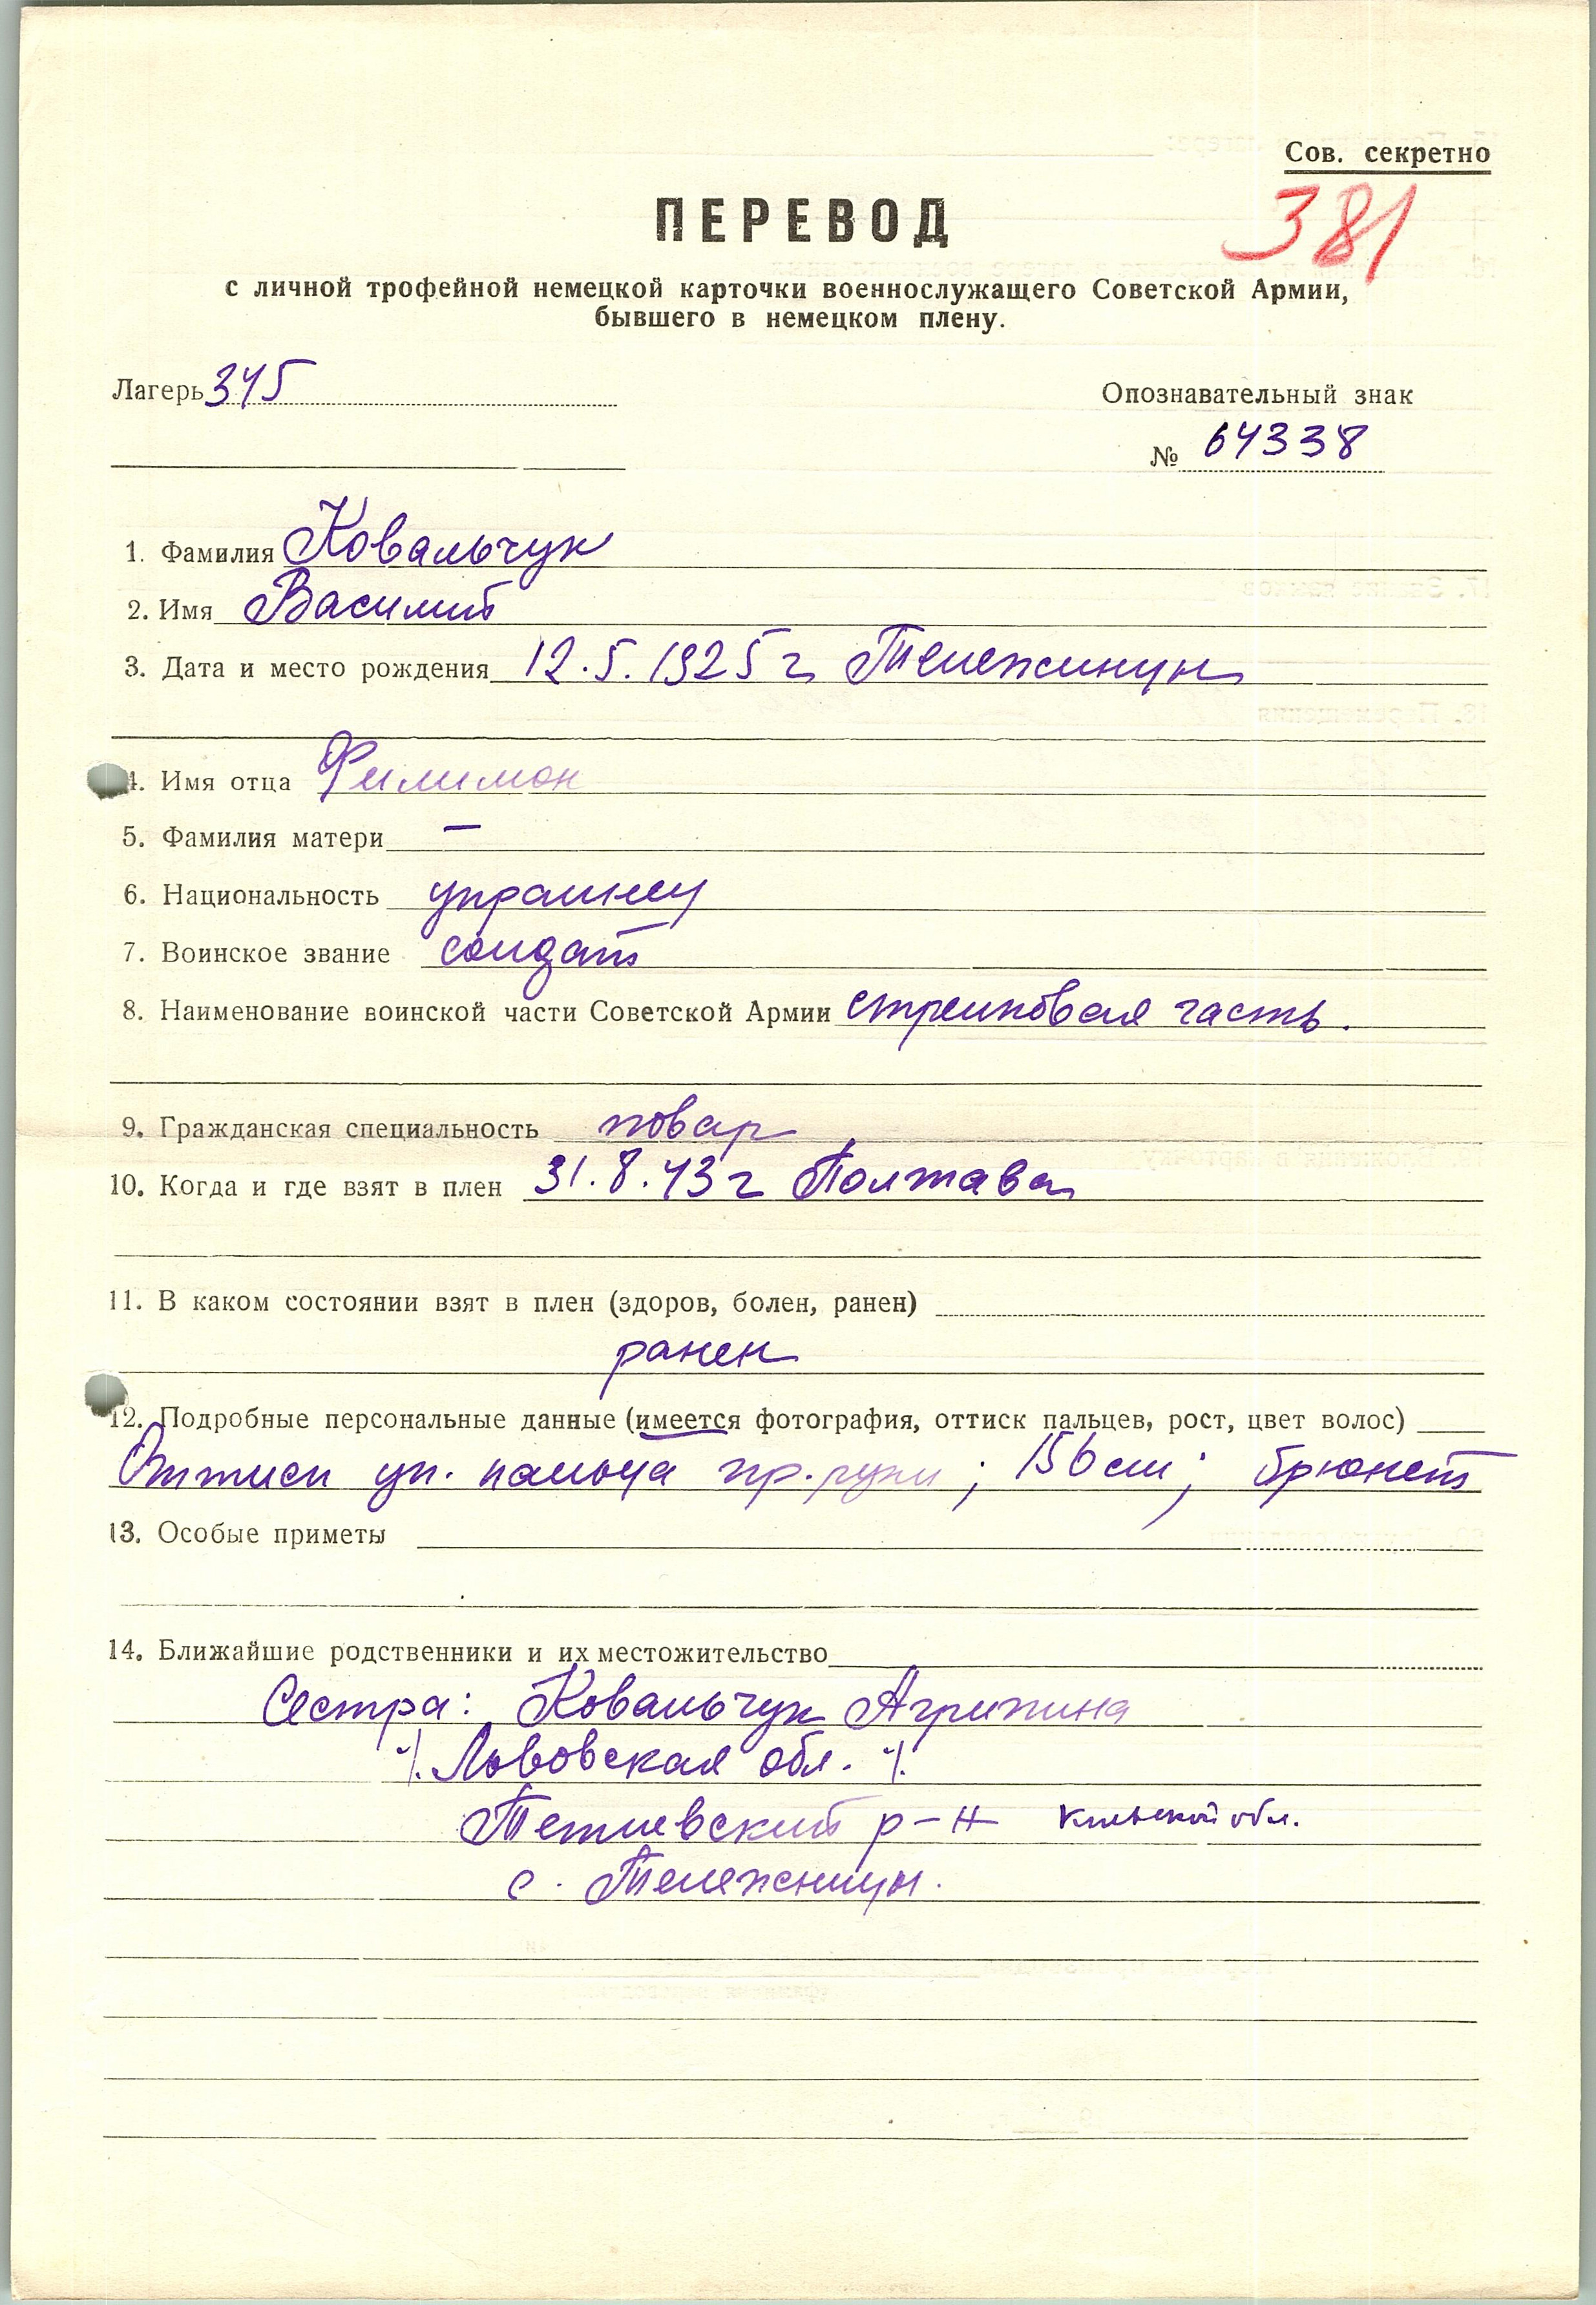 Сов. секретно
381
ПЕРЕВОД
с личной трофейной немецкой карточки военнослужащего Советской Армии,
бывшего в немецком плену.
Лагерь 345
Опознавательный знак
№ 64338
1. Фамилия Ковальчук
2. Имя Василий
3. Дата и место рождения 12.5.1925 г Тележинцы
4. Имя отца Филимон
5. Фамилия матери —
6. Национальность украинец
7. Воинское звание солдат
8. Наименование воинской части Советской Армии стрелковая часть.
9. Гражданская специальность повар
10. Когда и где взят в плен 31.8.43 г Полтава
11. В каком состоянии взят в плен (здоров, болен, ранен)
ранен
12. Подробные персональные данные (имеется фотография, оттиск пальцев, рост, цвет волос)
Оттиск ук. пальца пр. руки; 156 см; брюнет
13. Особые приметы
14. Ближайшие родственники и их местожительство
Сестра: Ковальчук Агрипина
./. Львовская обл. ./.
Тетиевский р-н Киевской обл.
с. Тележинцы.